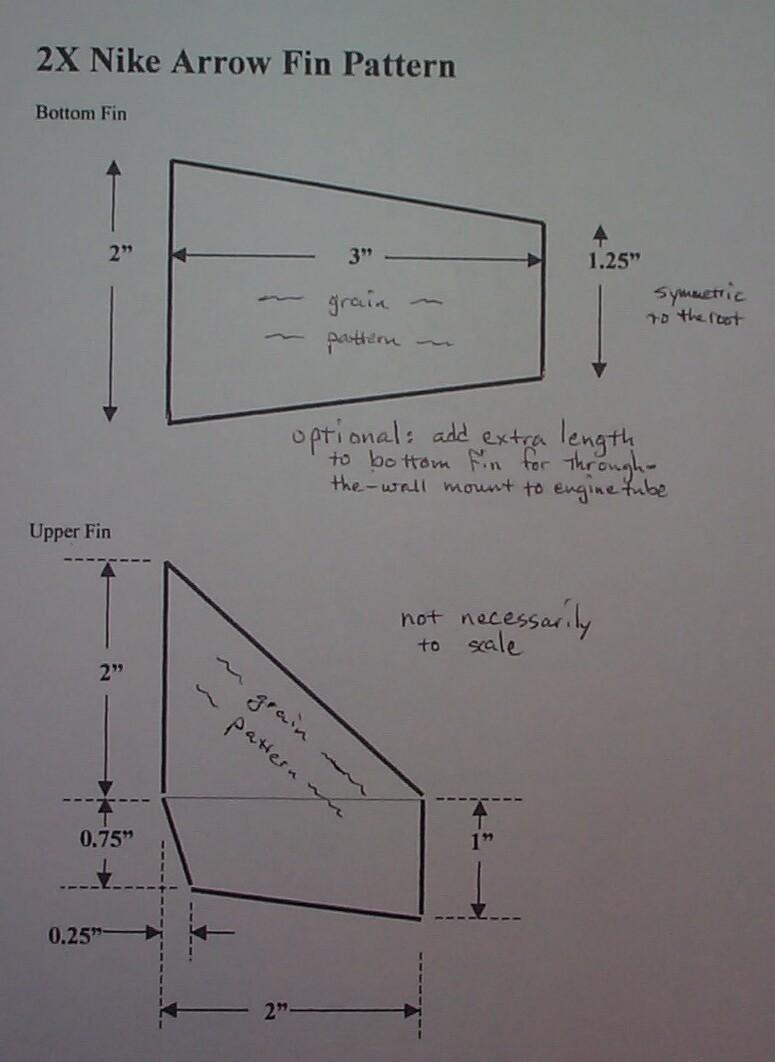 2X Nike Arrow Fin Pattern
Bottom Fin
2”
3”
1.25”
grain
pattern
symmetric
to the root
optional: add extra length
to bottom fin for through-
the-wall mount to engine tube
Upper Fin
not necessarily
to scale
2”
grain
pattern
0.75”
1”
0.25”
2”